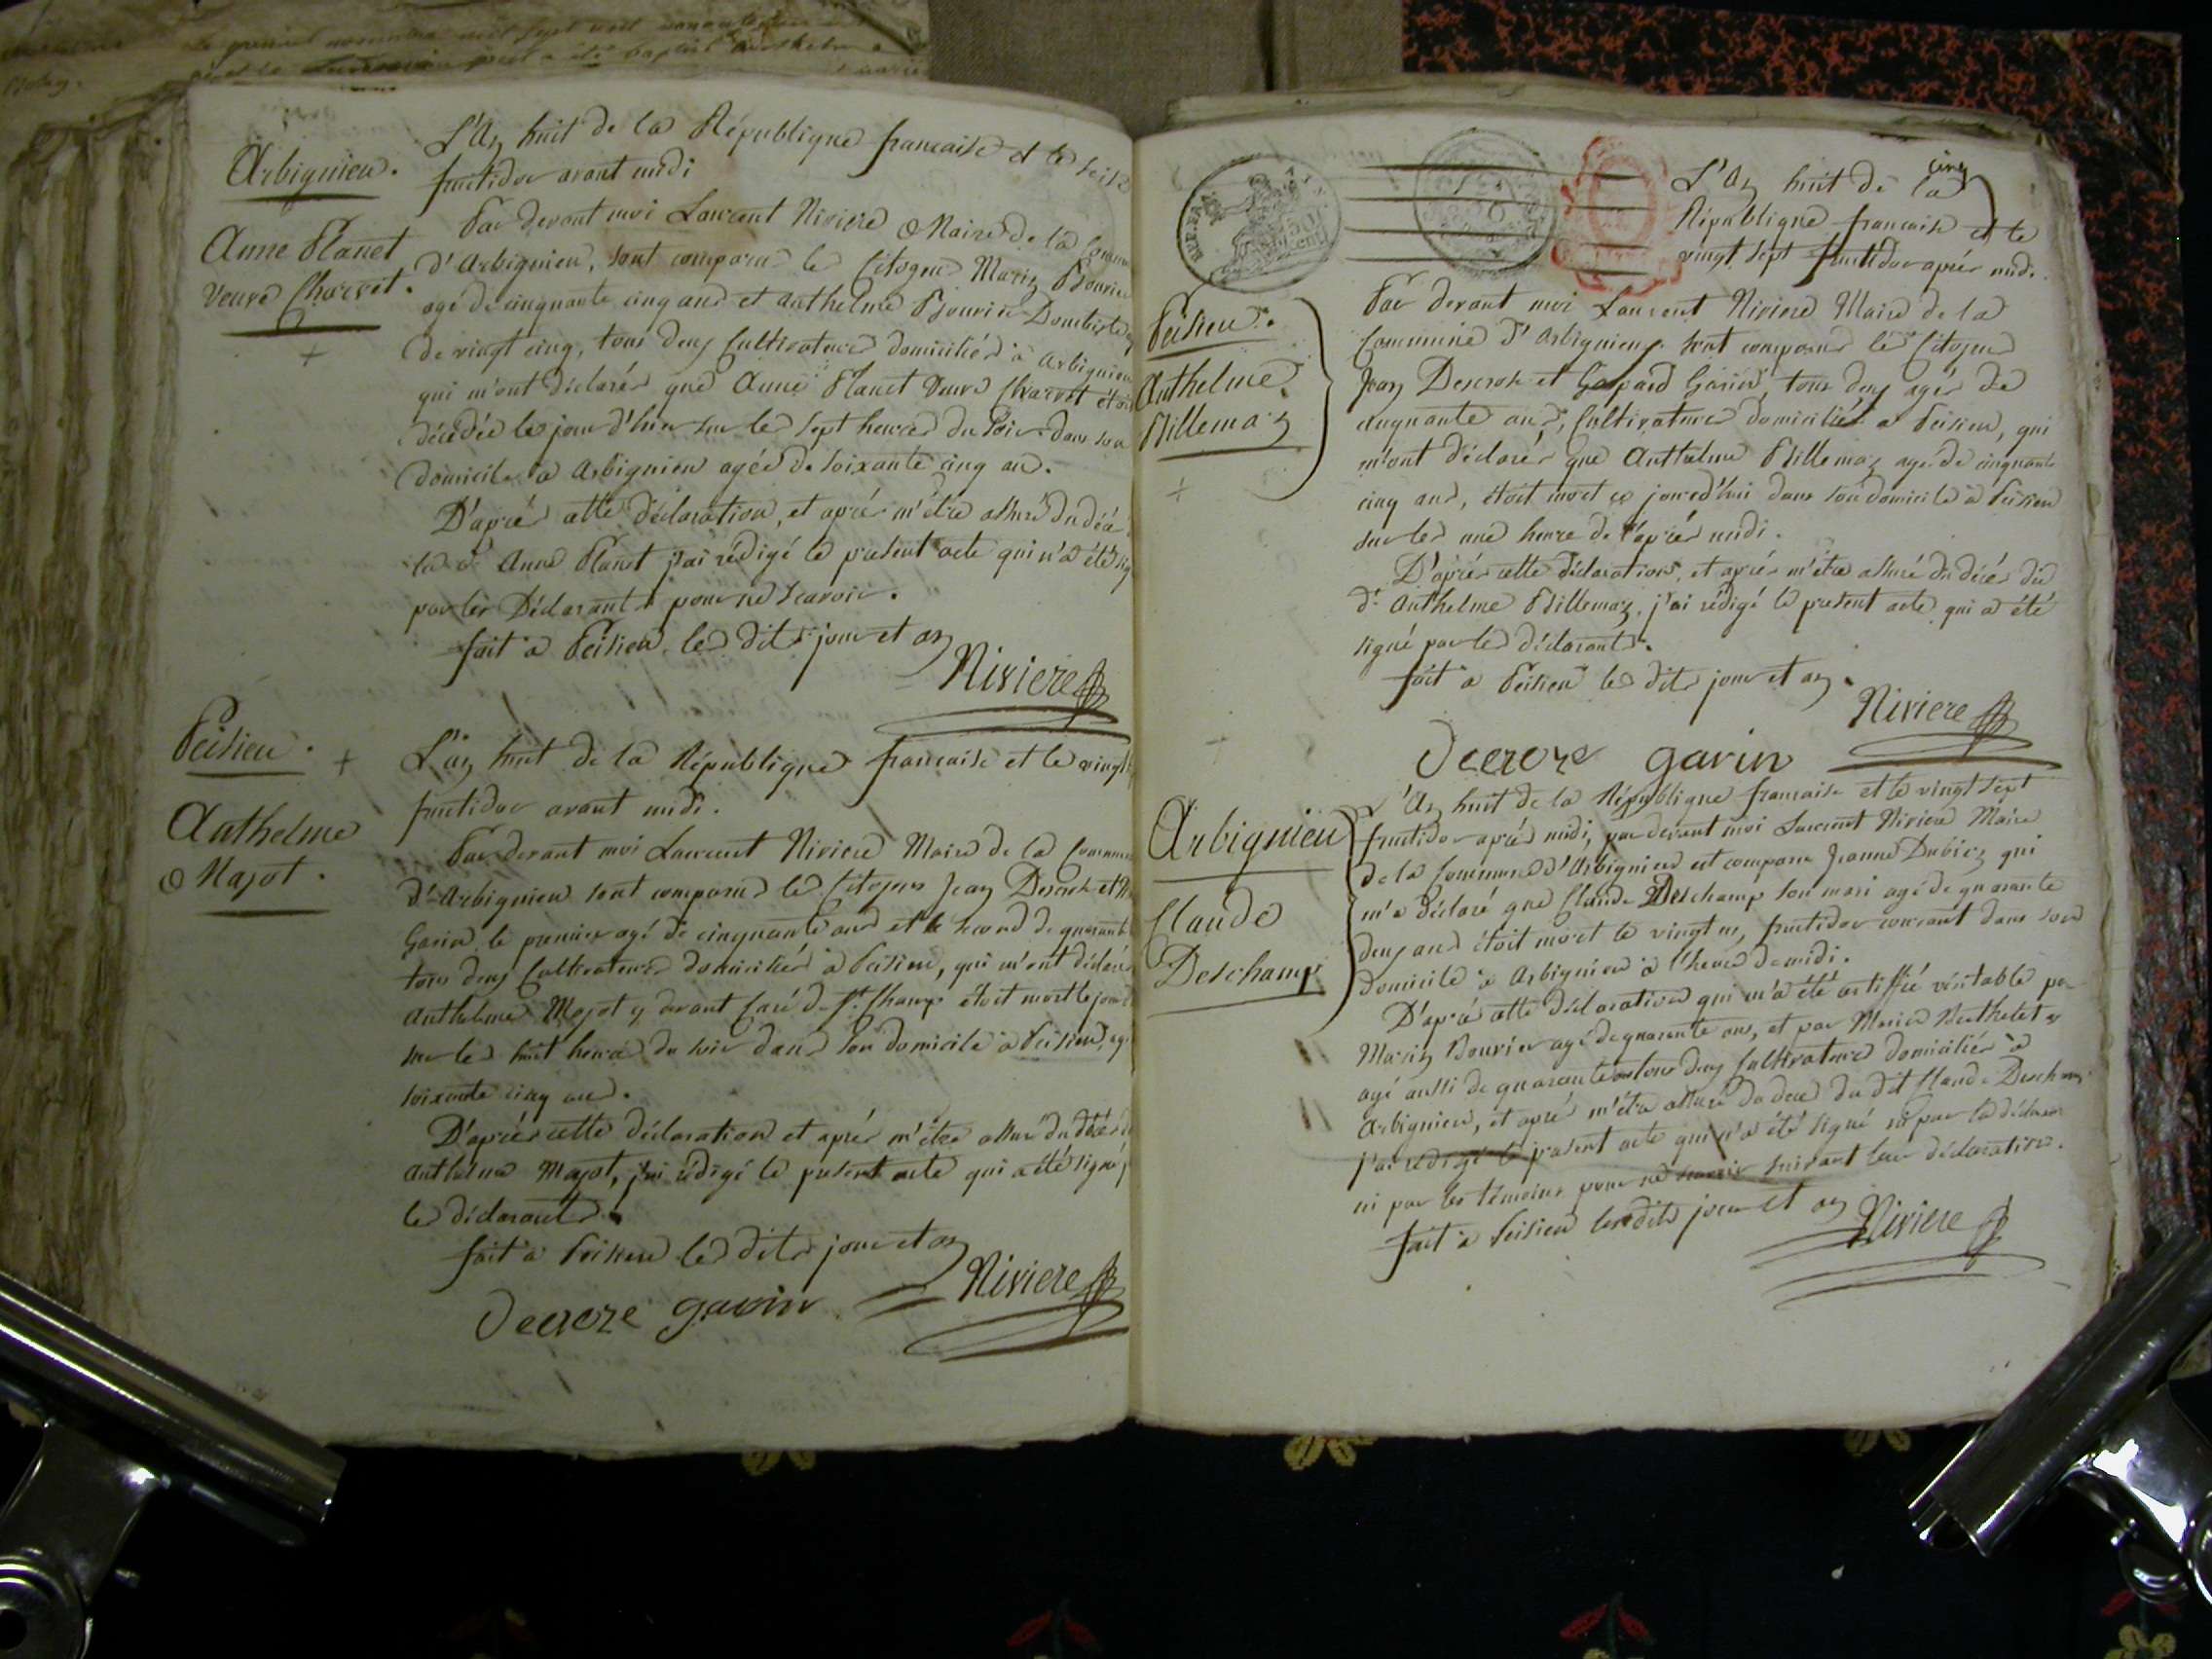 Arbignieu.
Anne Planet
veuve Charvet.
L'An huit de la République francaise et le seize
fructidor avant midi
Par devant moi Laurent Niviere Maire de la Commune
d'Arbignieu, sont comparu les Citoyens Marin Bouvier
agé de cinquante cinq ans et anthelme Bouvier
de vingt cinq, tous deux Cultivateurs domiciliés à Arbignieu
qui m'ont déclarés que Anne Planet veuve Charvet étoit
décédée le jour d'hier sur les sept heures du soir dans son
domicile à Arbignieu agée de soixante cinq ans.
D'après cette déclaration, et après m'être assuré du décé
la de Anne Planet j'ai rédigé le présent acte qui n'a été sig
par les Déclarants pour ne scavoir.
fait à Peisieu les dits jour et an
Niviere
Peisieu.
Anthelme
Majot.
L'an huit de la République francaise et le vingt
fructidor avant midi.
Par devant moi Laurent Niviere Maire de la Commune
d'Arbignieu sont comparus les Citoyens Jean Descroze et
Gavin le premier agé de cinquante ans et le second de quarante
tous deux Cultivateurs domiciliés à Peisieu, qui m'ont déclaré
Anthelme Majot cy devant Curé de St Champ étoit mort le jour
sur les huit heures du soir dans son domicile à Peisieu, agé
soixante cinq ans.
D'après cette déclaration et après m'être assuré du décès d
Anthelme Majot, j'ai rédigé le présent acte qui a été signé p
les déclarants.
fait à Peisieu les dits jour et an
Decroze gavin Niviere
cinq
L'An huit de la
République francaise et le
vingt sept fructidor après midi.
Peisieu.
Anthelme
Billemaz
Par devant moi Laurent Niviere Maire de la
Commune d'Arbignieu sont comparus les Citoyens
Jean Descroze et Gaspard Gavin, tous deux agés de
cinquante ans, Cultivateurs domiciliés à Peisieu, qui
m'ont déclarés que Anthelme Billemaz agé de cinquante
cinq ans, étoit mort ce jourd'hui dans son domicile à Peisieu
sur les une heure de l'après midi.
D'après cette déclaration, et après m'être assuré du décès du
dt Anthelme Billemaz, j'ai rédigé le présent acte qui a été
signé par les déclarants.
fait à Peisieu les dits jour et an.
Niviere
Decroze gavin
Arbignieu
Claude
Deschamp
L'An huit de la République francaise et le vingt sept
fructidor après midi, par devant moi Laurent Niviere Maire
de la Commune d'Arbignieu est comparu Jeanne Dubiez qui
m'a déclaré que Claude Deschamp son mari agé de quarante
deux ans étoit mort le vingt un, fructidor courant dans son
domicile à Arbignieu à l'heure de midi.
D'après cette déclaration qui m'a été certiffié véritable par
Marin Bouvier agé de quarante ans, et par Marin Berthelet
agé aussi de quarante ans tous deux Cultivateurs domiciliés à
Arbignieu, et après m'être assuré du décé du dit Claude Deschamp
j'ai rédigé le présent acte qui n'a été signé ni par la déclarante
ni par les témoins pour ne scavoir suivant leur déclaration.
fait à Peisieu les dits jour et an
Niviere